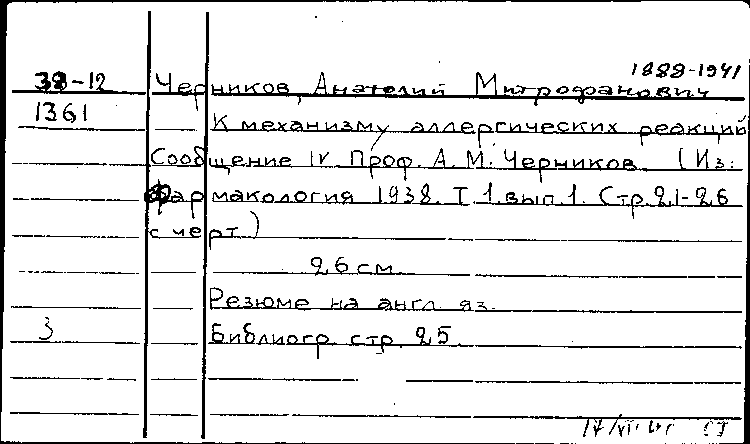 1888-1941
38-12 Черников, Анатолий Митрофанович
1361 К механизму аллергических реакций
Сообщение IV. Проф. А. М. Черников. (Из:
Фармакология 1938. Т 1. вып 1. Стр. 21-26
с черт.)
26 см.
Резюме на англ. яз.
3 Библиогр. стр. 25.